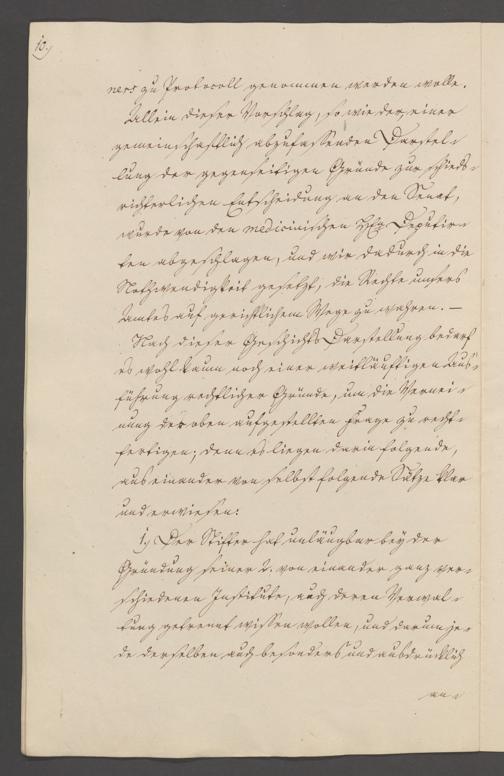 10.)
ners zu Protocoll genommen werden wolle.
Allein dieser Vorschlag, so wie der, einer
gemeinschaftlich abzufassenden Darstel-
lung der gegenseitigen Gründe zur schieds-
richterlichen Entscheidung an den Senat,
wurde von den medicinischen Hfg. Deputir-
ten abgeschlagen, und wir dadurch in die
Nothwendigkeit gesetzt, die Rechte unsers
Amtes auf gerichtlichem Wege zu wahren. —
Nach dieser Geschichts Darstellung bedarf
es wohl kaum noch einer weitläuftigen Aus-
führung rechtlicher Gründe, um die Vernei-
nung der oben aufgestellten Frage zu recht-
fertigen; denn es liegen darin folgende,
aus einander von selbst folgende Sätze klar
und erwiesen:
1.) Der Stifter hat unläugbar bey der
Gründung seiner 2. von einander ganz ver-
schiedenen Institute, auch deren Verwal-
tung getrennt wissen wollen, und darum je-
de derselben auch besonders und ausdrücklich
an-